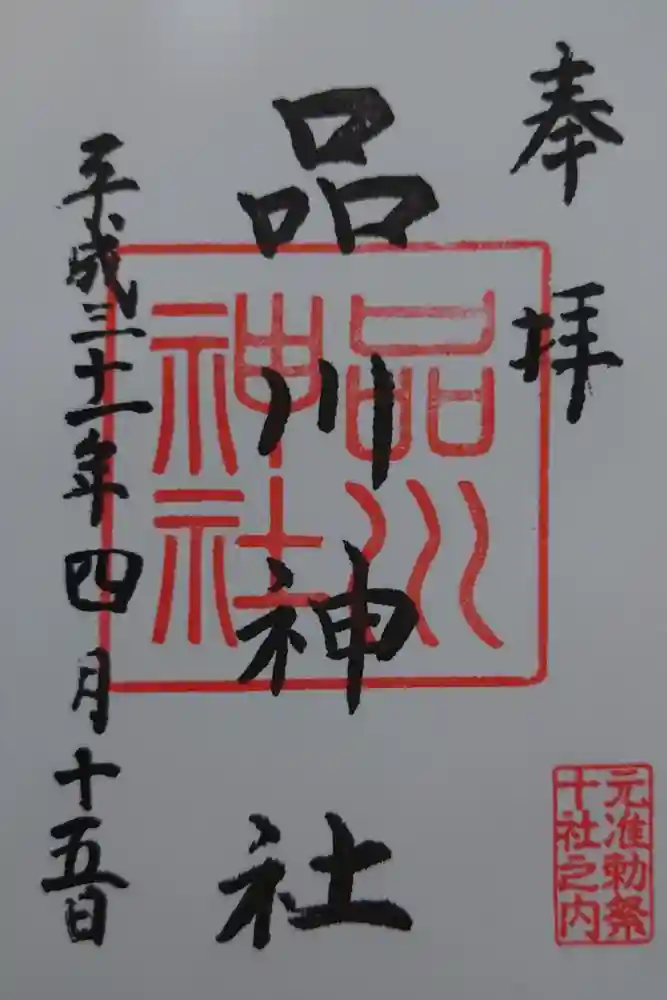 奉拝
品川神社
品川
神社
平成三十一年四月十五日
元准勅祭
十社之内